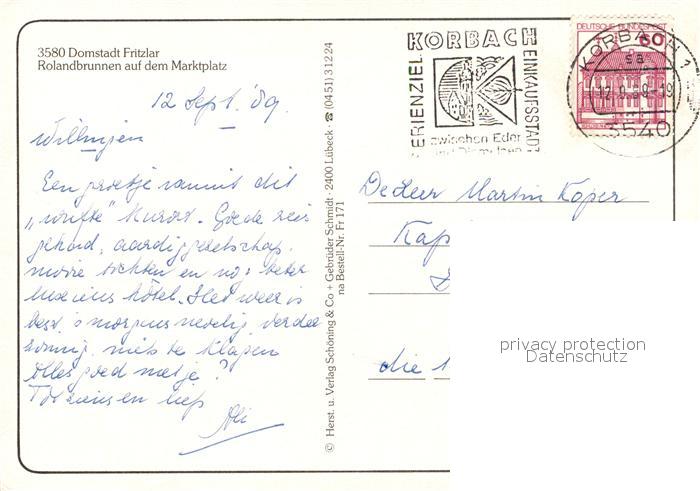 3580 Domstadt Fritzlar
Rolandbrunnen auf dem Marktplatz
12 Sept. '89
Willingen
Een groetje vanuit dit
Kurort. Goede reis
gehad, aardig gezelschap,
mooie tochten en
hôtel. Het weer is
best, 's morgens nevelig, verder
zonnig, niets te klagen
Alles goed met je?
Tot ziens en liefs
© Herst. u. Verlag Schöning & Co + Gebrüder Schmidt · 2400 Lübeck · ☎ (0451) 31224
na Bestell-Nr. Fr 171
FERIENZIEL
KORBACH
EINKAUFSSTADT
zwischen Eder
DEUTSCHE BUNDESPOST
60
KORBACH 1
3540
De Heer Martin Koper
Kap
die
privacy protection
Datenschutz